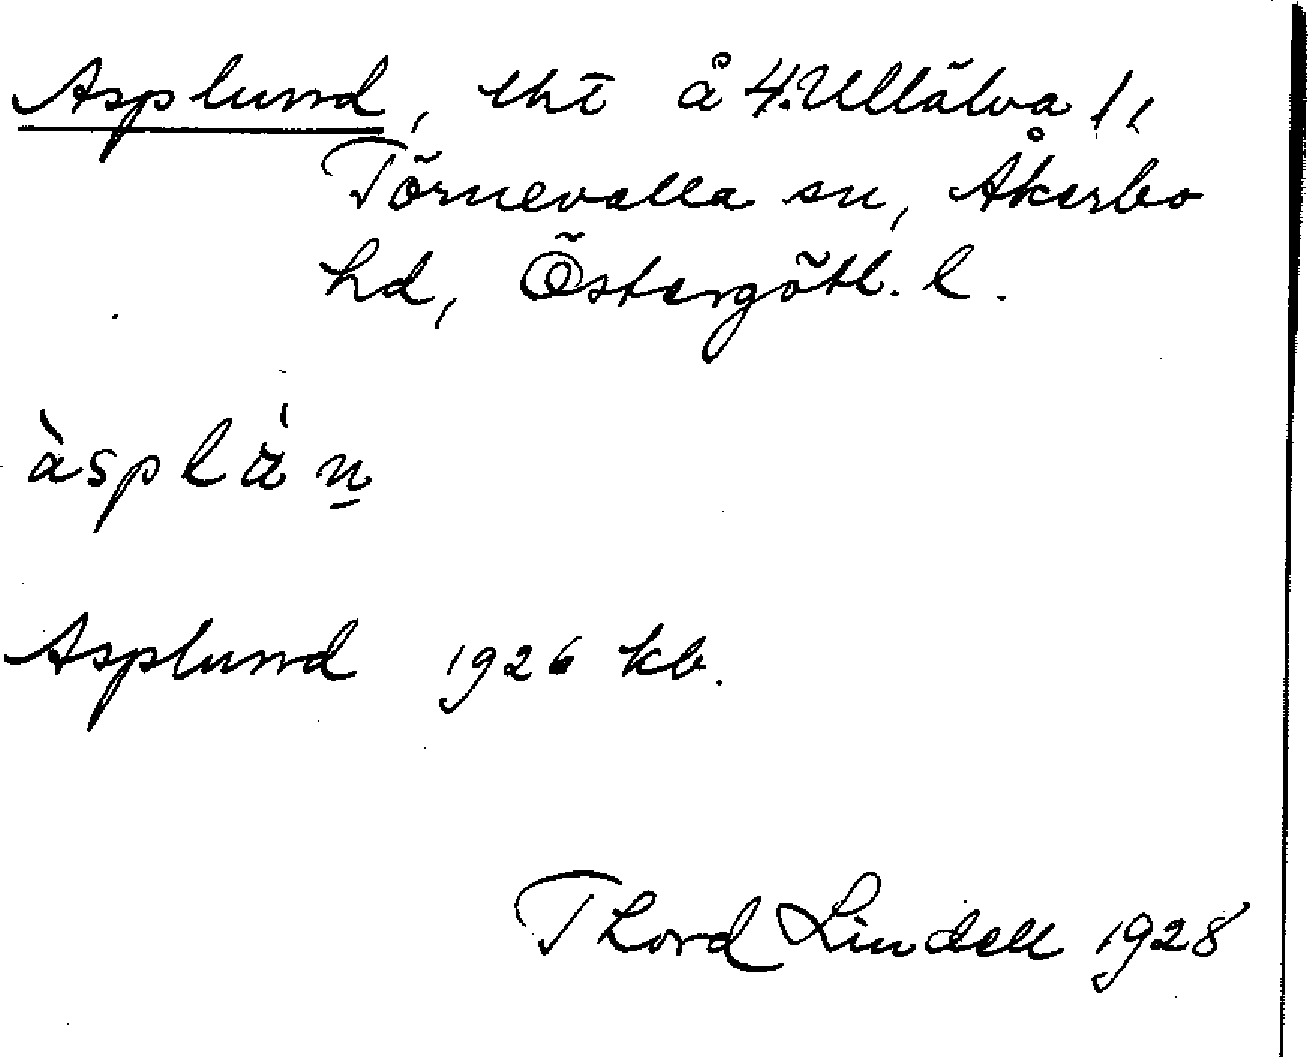 Asplund, lht å 4. Ullälva 1,
Törnevalla sn, Åkerbo
hd, Östergötl. l.
àsplán̲
Asplund 1926 kb.
Thord Lindell 1928